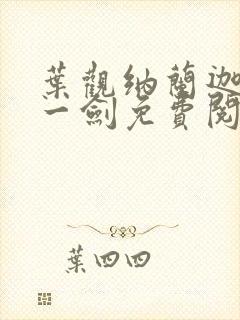 葉觀納蘭迦
一劍免費閱
葉四四